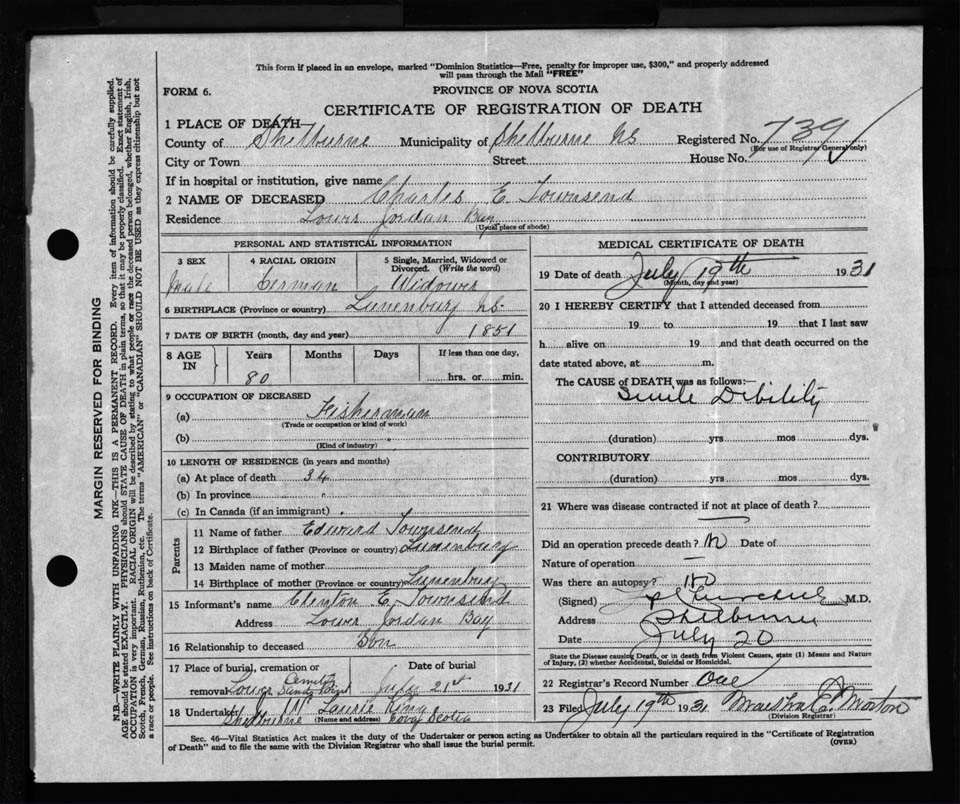 This form if placed in an envelope, marked "Dominion Statistics—Free, penalty for improper use, $300," and properly addressed
will pass through the Mail "FREE"
FORM 6.
PROVINCE OF NOVA SCOTIA
CERTIFICATE OF REGISTRATION OF DEATH
1 PLACE OF DEATH
County of Shelburne Municipality of Shelburne NS Registered No. 739
(For use of Registrar General only)
City or Town Street House No.
If in hospital or institution, give name
2 NAME OF DECEASED Charles E. Townsend
Residence Lower Jordan Bay
(Usual place of abode)
PERSONAL AND STATISTICAL INFORMATION
3 SEX 4 RACIAL ORIGIN 5 Single, Married, Widowed or
Divorced. (Write the word)
Male German Widower
6 BIRTHPLACE (Province or country) Lunenburg NS
7 DATE OF BIRTH (month, day and year) 1851
8 AGE IN Years Months Days If less than one day,
80 hrs. or min.
9 OCCUPATION OF DECEASED
(a) Fisherman
(Trade or occupation or kind of work)
(b)
(Kind of industry)
10 LENGTH OF RESIDENCE (in years and months)
(a) At place of death 34
(b) In province "
(c) In Canada (if an immigrant)
Parents
11 Name of father Edward Townsend
12 Birthplace of father (Province or country) Lunenburg
13 Maiden name of mother
14 Birthplace of mother (Province or country) Lunenburg
15 Informant's name Clenton E. Townsend
Address Lower Jordan Bay
16 Relationship to deceased Son
17 Place of burial, cremation or Date of burial
removal Lower Sandy Point 21st 1931
18 Undertaker Laurie King
Shelburne (Name and address) Nova Scotia
MEDICAL CERTIFICATE OF DEATH
19 Date of death July 19th 1931
(Month, day and year)
20 I HEREBY CERTIFY that I attended deceased from
19 to 19 that I last saw
h alive on 19 and that death occurred on the
date stated above, at m.
The CAUSE OF DEATH was as follows:—
Senile Debility
(duration) yrs mos dys.
CONTRIBUTORY
(duration) yrs mos dys.
21 Where was disease contracted if not at place of death?
Did an operation precede death? No Date of
Nature of operation —
Was there an autopsy? no
(Signed) Churchill M.D.
Address Shelburne
Date July 20
State the Disease causing Death, or in death from Violent Causes, state (1) Means and Nature
of Injury, (2) whether Accidental, Suicidal or Homicidal.
22 Registrar's Record Number One
23 Filed July 19th 1931
(Division Registrar)
Sec. 46—Vital Statistics Act makes it the duty of the Undertaker or person acting as Undertaker to obtain all the particulars required in the "Certificate of Registration
of Death" and to file the same with the Division Registrar who shall issue the burial permit. (OVER)
MARGIN RESERVED FOR BINDING
N.B.—WRITE PLAINLY WITH UNFADING INK—THIS IS A PERMANENT RECORD. Every item of information should be carefully supplied.
AGE should be stated EXACTLY. PHYSICIANS should STATE CAUSE OF DEATH in plain terms, so that it may be properly classified. Exact statement of
OCCUPATION is very important. RACIAL ORIGIN will be described by stating to what people or race the deceased person belonged, whether English, Irish,
Scotch, French, German, Russian, Ruthenian, etc. The terms "AMERICAN" or "CANADIAN" SHOULD NOT BE USED as they express citizenship but not
a race or people. See instructions on back of Certificate.